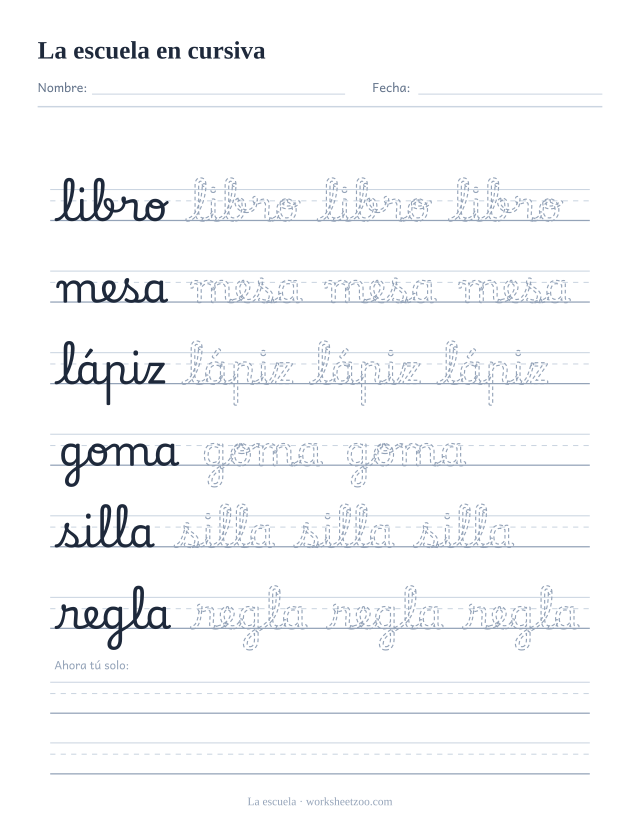 La escuela en cursiva
Nombre: Fecha:
libro libro libro libro
mesa mesa mesa mesa
lápiz lápiz lápiz lápiz
goma goma goma
silla silla silla silla
regla regla regla regla
Ahora tú solo:
La escuela · worksheetzoo.com